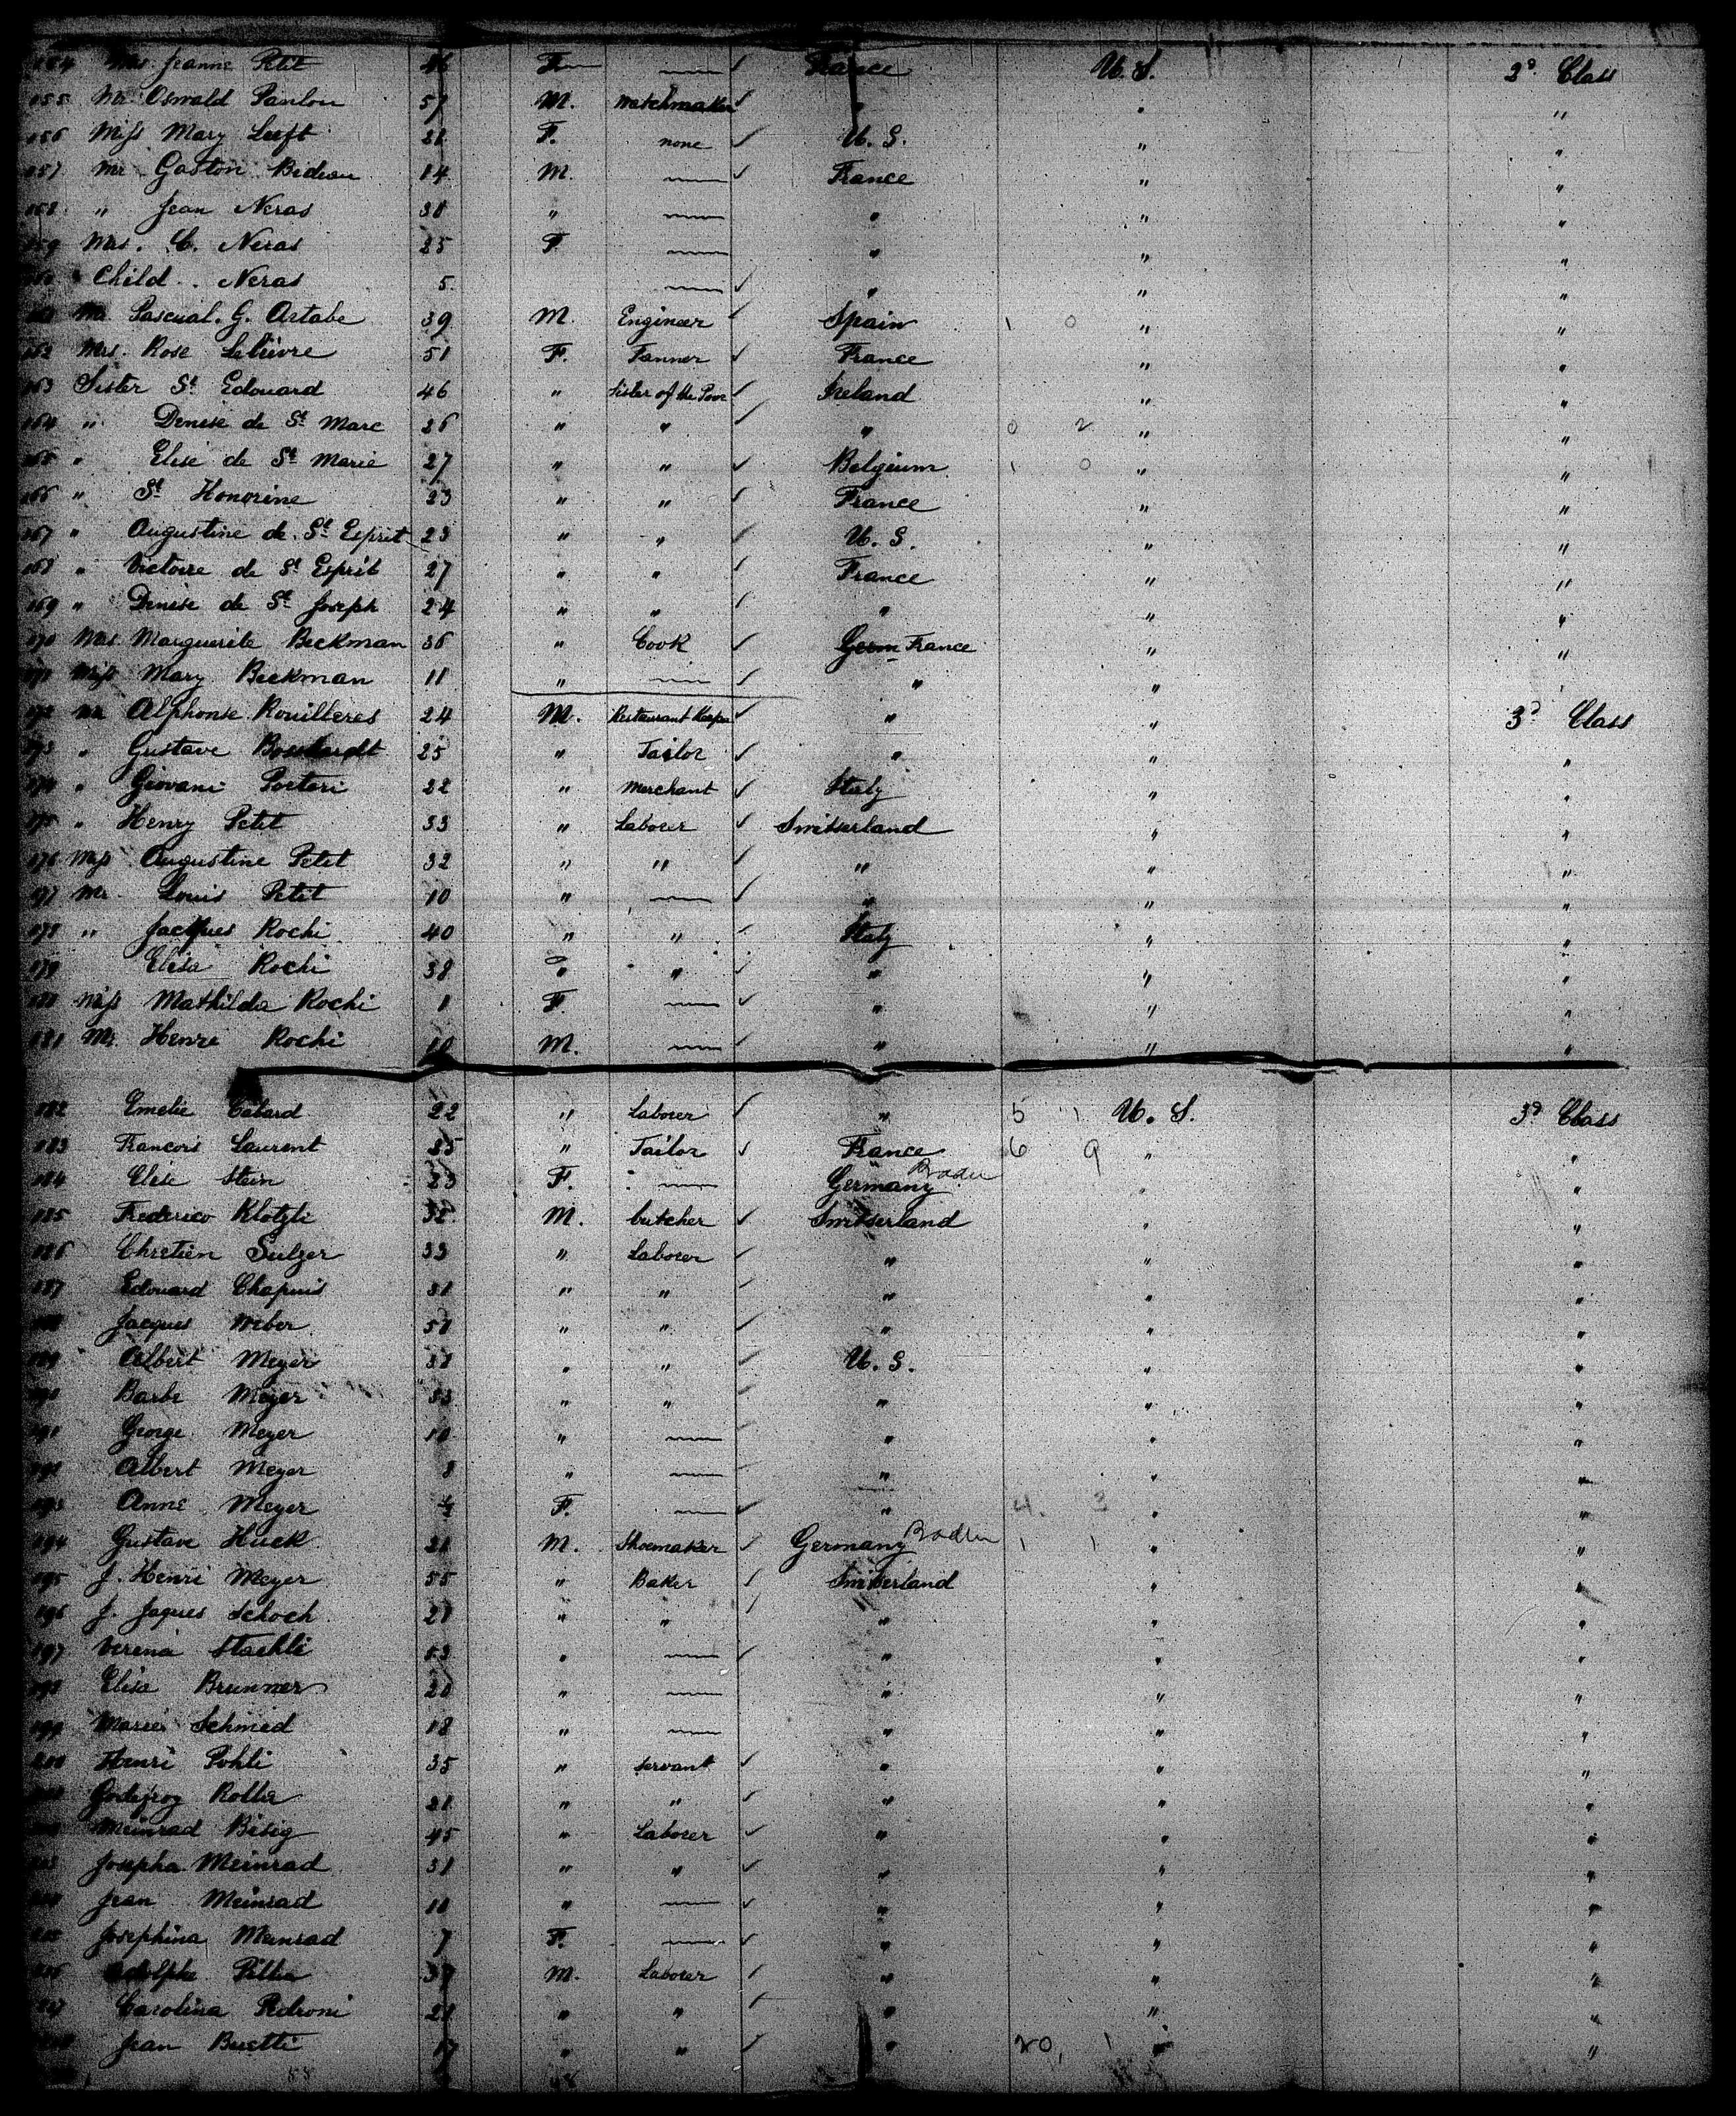 154 Mrs Jeanne Petit 26 F. France U. S. 2d Class
155 Mr Oswald Paulou 57 M. Watchmaker " " "
156 Miss Mary Leeft F. none U. S. " "
157 Mr Gaston Bideau 14 M. France " "
158 " Jean Neras 38 " " " "
159 Mrs. C. Neras 25 F. " " "
160 Child.. Neras 5. " " "
161 Mr Pascual. G. Artabe 39 M. Engineer Spain 1 0 " "
162 Mrs. Rose Lelièvre 51 F. Tanner France " "
163 Sister St Edouard 46 " Sister of the Poor Ireland " "
164 " Denise de St Marc 26 " " " 0 2 " "
165 " Elise de St Marie 27 " " Belgium 1 0 " "
166 " St Honorine 23 " " France " "
167 " Augustine de St Esprit 23 " " U. S. " "
168 " Victoire de St Esprit 27 " " France " "
169 " Denise de St Joseph 24 " " " " "
170 Mrs. Marguerite Beckman 36 " Cook Germ France " "
171 Miss Mary Beckman 11 " " " "
172 Mr Alphonse Rouilleres 24 M. Restaurant Keeper " " 3d Class
173 " Gustave 25 " Tailor " " "
174 " Giovani Portori 22 " Merchant Italy " "
175 " Henry Petit 33 " Laborer Switserland " "
176 Miss Augustine Petit 32 " " " " "
177 Mr. Louis Petit 10 " " " "
178 " Jacques Rochi 40 " " Italy " "
179 Elisa Rochi 38 " " " " "
180 Miss Mathilda Rochi 1 F. " " "
181 Mr. Henri Rochi 10 M. " " "
182 Emelie Cabard 22 " Laborer " 5 11 U. S. 3d Class
183 Francois Laurent 35 " Tailor France 6 9 " "
184 Elise Stein 23 F. Germany Baden " "
185 Frederico Klotzli 32 M. butcher Switserland " "
186 Chretien Sulzer 33 " Laborer " " "
187 Edouard Chapuis 31 " " " " "
188 Jacques Weber 51 " " " " "
189 Albert Meyer 38 " " U. S. " "
190 Barbe Meyer 33 " " " " "
191 George Meyer 10 " " " "
192 Albert Meyer 8 " " " "
193 Anne Meyer 4 F. " 4. 3 " "
194 Gustave Huck 21 M. Shoemaker Germany Baden 1 1 " "
195 J. Henri Meyer 55 " Baker Switserland " "
196 J. Jaques Schoch 21 " " " " "
197 Verena Staehli 53 " " " "
198 Elisa Brunner 20 " " " "
199 Marie Schmid 18 " " " "
200 Henri Pohli 35 " Servant " " "
Godefroy Rolla 21 " " " " "
Meinrad Bisig 45 " Laborer " " "
203 Josepha Meinrad 31 " " " " "
Jean Meinrad 10 " " " "
205 Josephina Meinrad 7 F. " " "
206 Adolphe 37 M. Laborer " " "
207 Carolina Pedroni 28 " " " " "
Jean Buetti 17 " " " 20, 1 " "